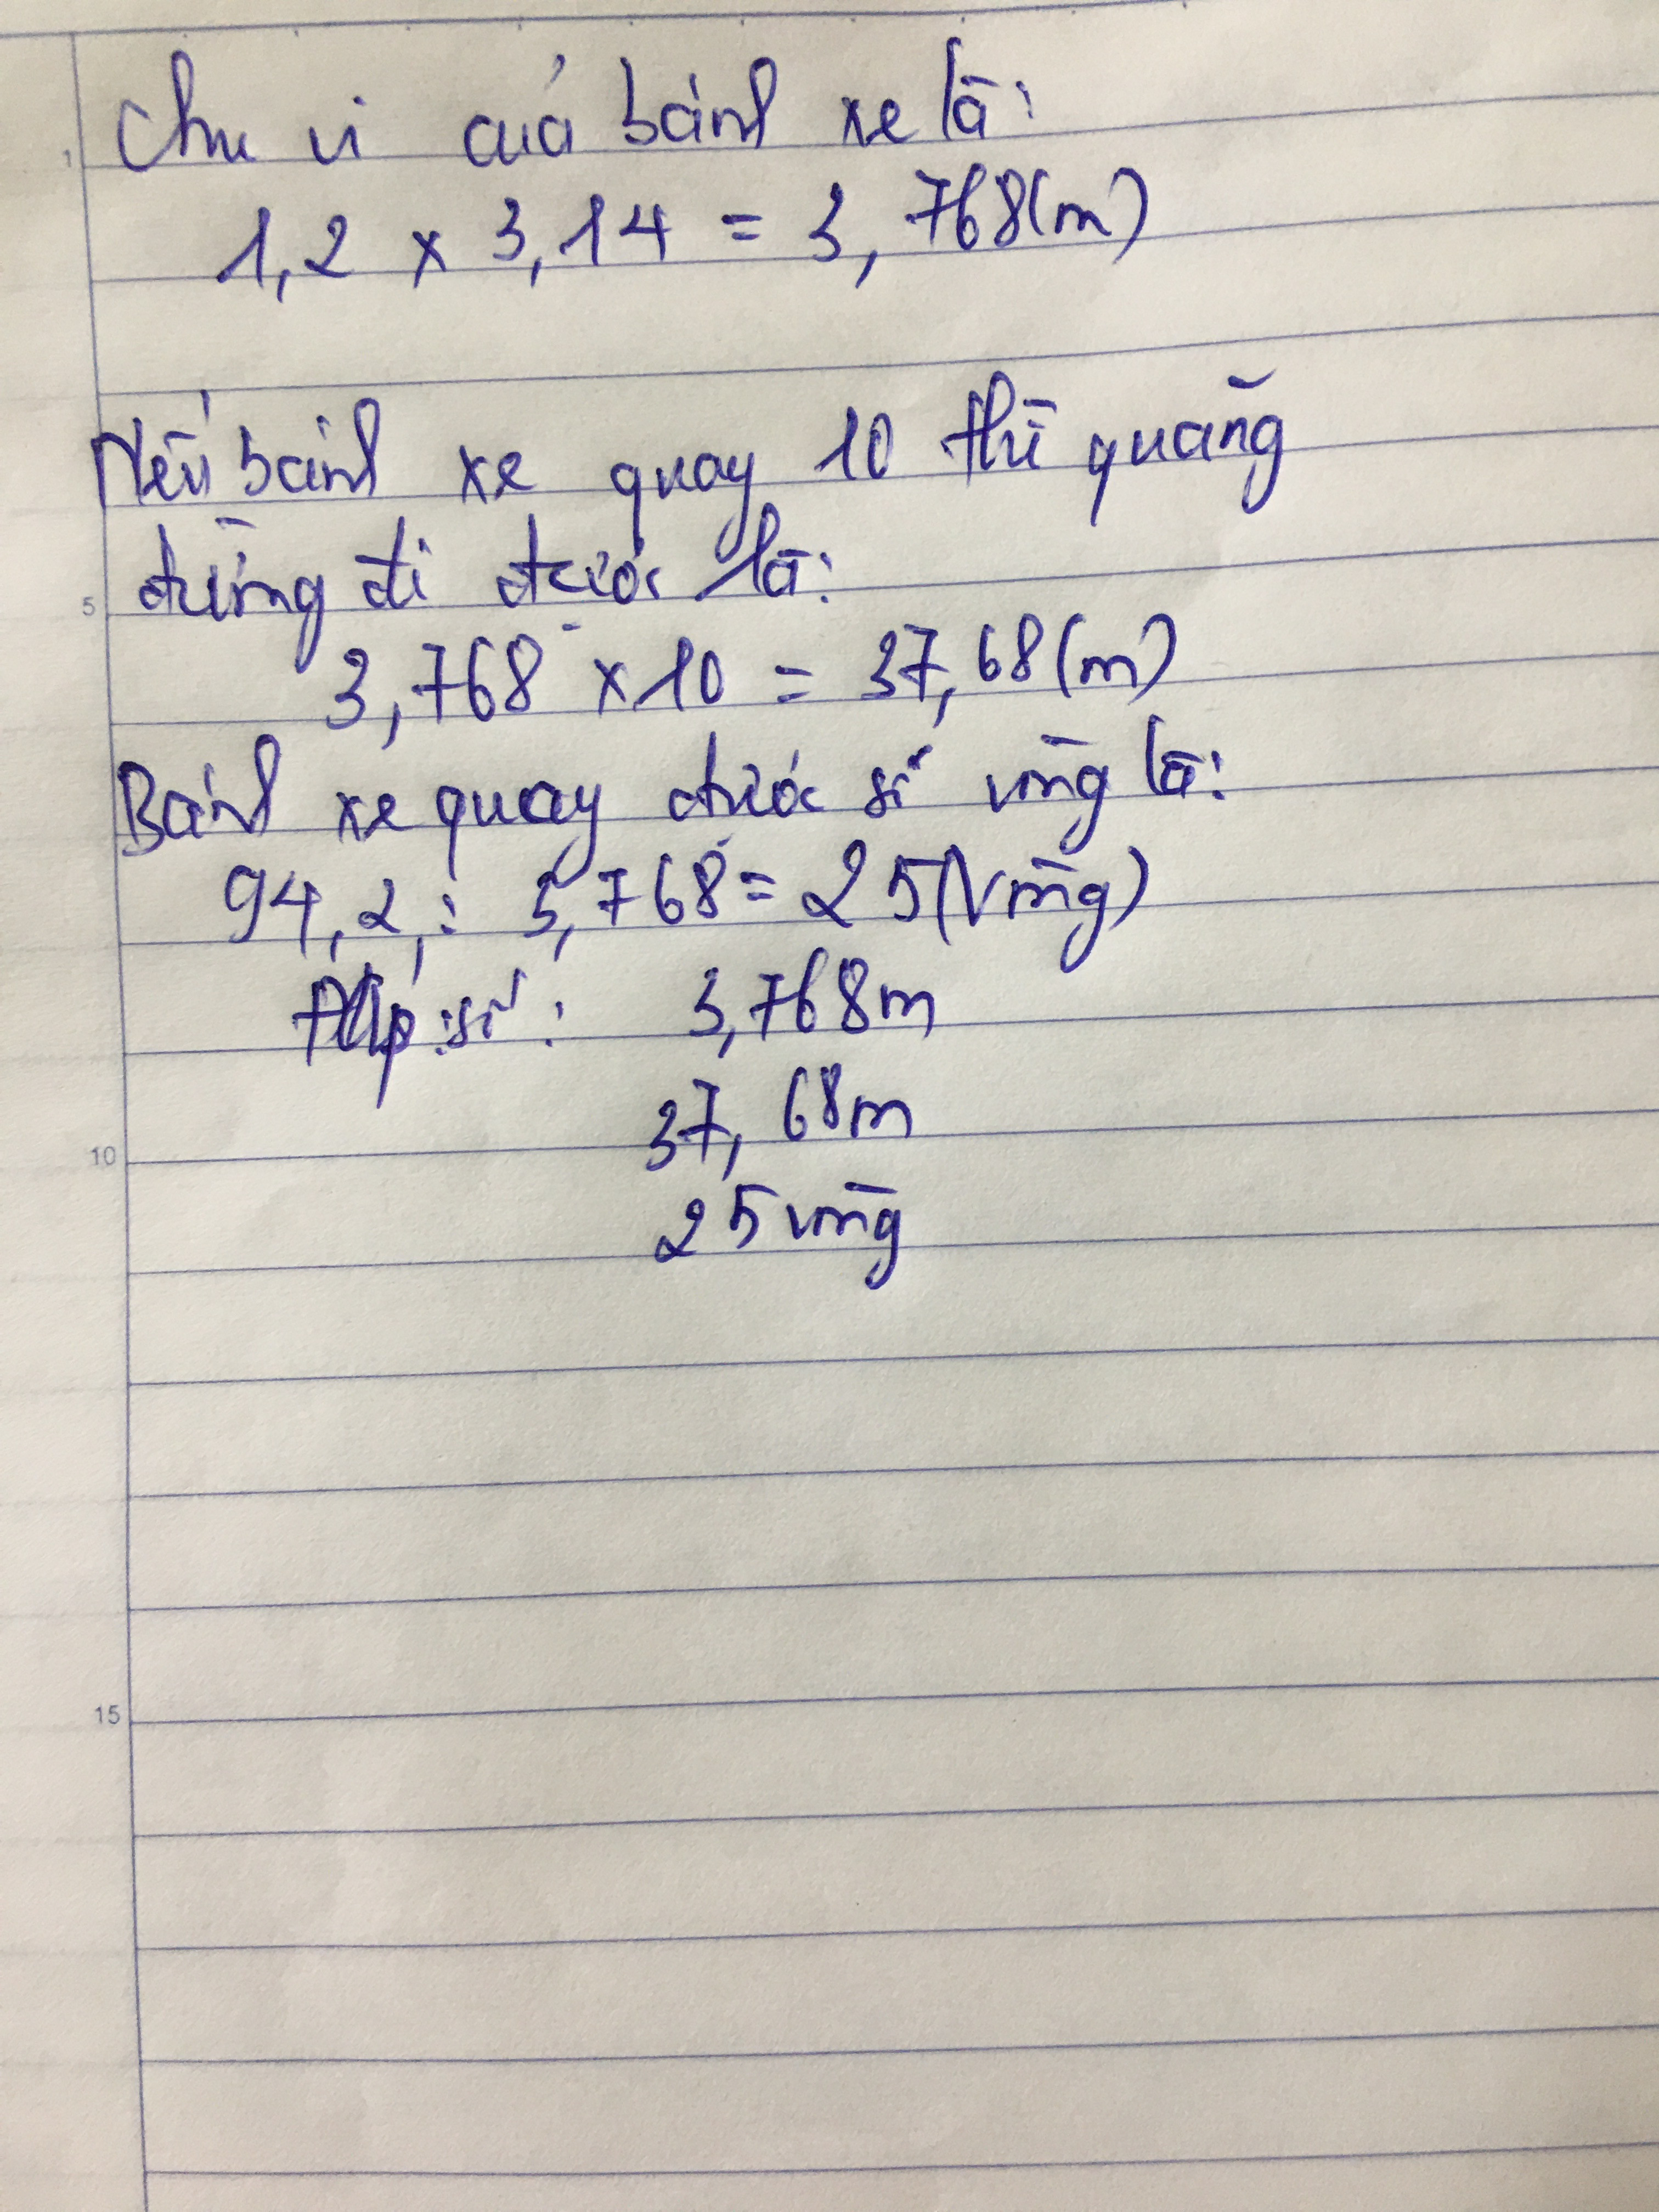 Chu vi của bánh xe là:
1,2 x 3,14 = 3,768(m)
Nếu bánh xe quay 10 thì quãng
đường đi được là:
3,768 x 10 = 37,68(m)
Bánh xe quay được số vòng là:
94,2 : 3,768 = 25(vòng)
Đáp số: 3,768m
37,68m
25 vòng
1
5
10
15